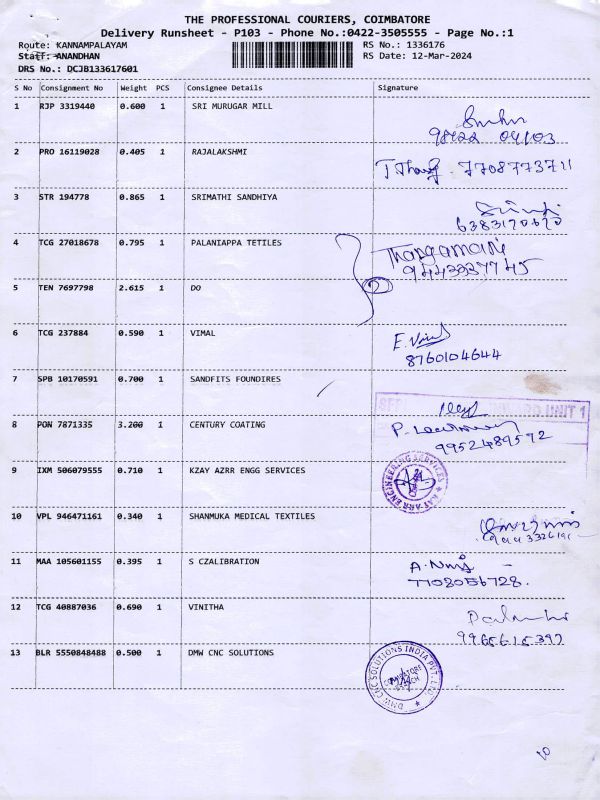 THE PROFESSIONAL COURIERS, COIMBATORE
Delivery Runsheet - P103 - Phone No.:0422-3505555 - Page No.:1
Route: KANNAMPALAYAM RS No.: 1336176
Staff: ANANDHAN RS Date: 12-Mar-2024
DRS No.: DCJB133617601
S No Consignment No Weight PCS Consignee Details Signature
1 RJP 3319440 0.600 1 SRI MURUGAR MILL
2 PRO 16119028 0.405 1 RAJALAKSHMI
7708773711
3 STR 194778 0.865 1 SRIMATHI SANDHIYA
6383170670
4 TCG 27018678 0.795 1 PALANIAPPA TETILES
Thangamani
5 TEN 7697798 2.615 1 DO
6 TCG 237884 0.590 1 VIMAL
8760104644
7 SPB 10170591 0.700 1 SANDFITS FOUNDIRES
UNIT 1
8 PON 7871335 3.200 1 CENTURY COATING
9952489592
9 IXM 506079555 0.710 1 KZAY AZRR ENGG SERVICES
ENGINEERING SERVICES
10 VPL 946471161 0.340 1 SHANMUKA MEDICAL TEXTILES
11 MAA 105601155 0.395 1 S CZALIBRATION
7708056728.
12 TCG 40887036 0.690 1 VINITHA
13 BLR 5550848488 0.500 1 DMW CNC SOLUTIONS
DMW CNC SOLUTIONS INDIA PVT. LTD.
COIMBATORE
BRANCH